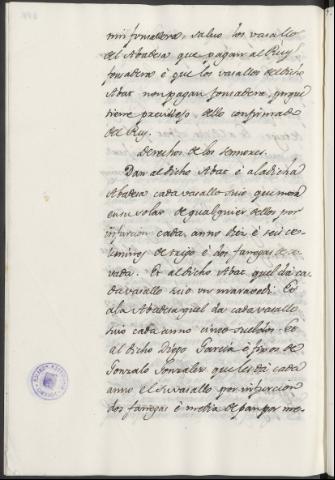 nin fonsadera, salvo los vasallos
del Abadesa que pagan al Rey
fonsadera è que los vasallos del dicho
Abat non pagan fonsadera, porque
tiene previllejo dello confirmado
del Rey.
Derechos de los Señores.
Dan al dicho Abat è a la dicha
Abadesa cada vasallo suio que mora
en su solar de qualquier dellos por
infurcion cada anno diez è seis ce-
lemines de trigo è dos fanegas de ce-
vada. Et al dicho Abat quel da ca-
da vasallo suio un maravedi. Et
a la Abadesa quel da cada vasallo
suio cada anno cinco sueldos. Et
al dicho Diego Garcia è fijos de
Gonzalo Gonzalez que les da cada
anno el su vasallo por infurcion
dos fanegas è media de pan por me-